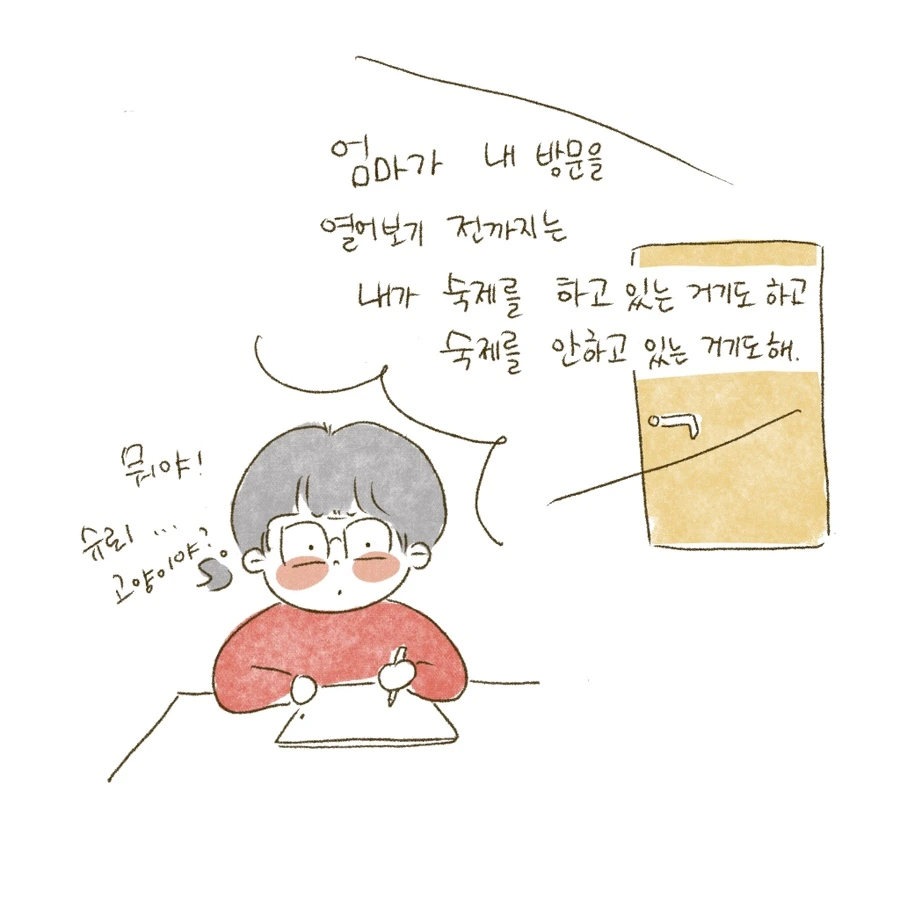 엄마가 내 방문을
열어보기 전까지는
내가 숙제를 하고 있는 거기도 하고
숙제를 안하고 있는 거기도해.
뭐야!
슈뢰...
고양이야?